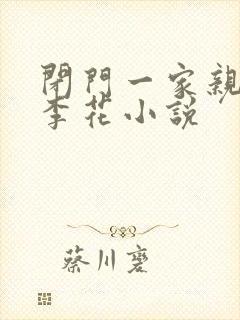 閉門一家親
李花小説
蔡川麐